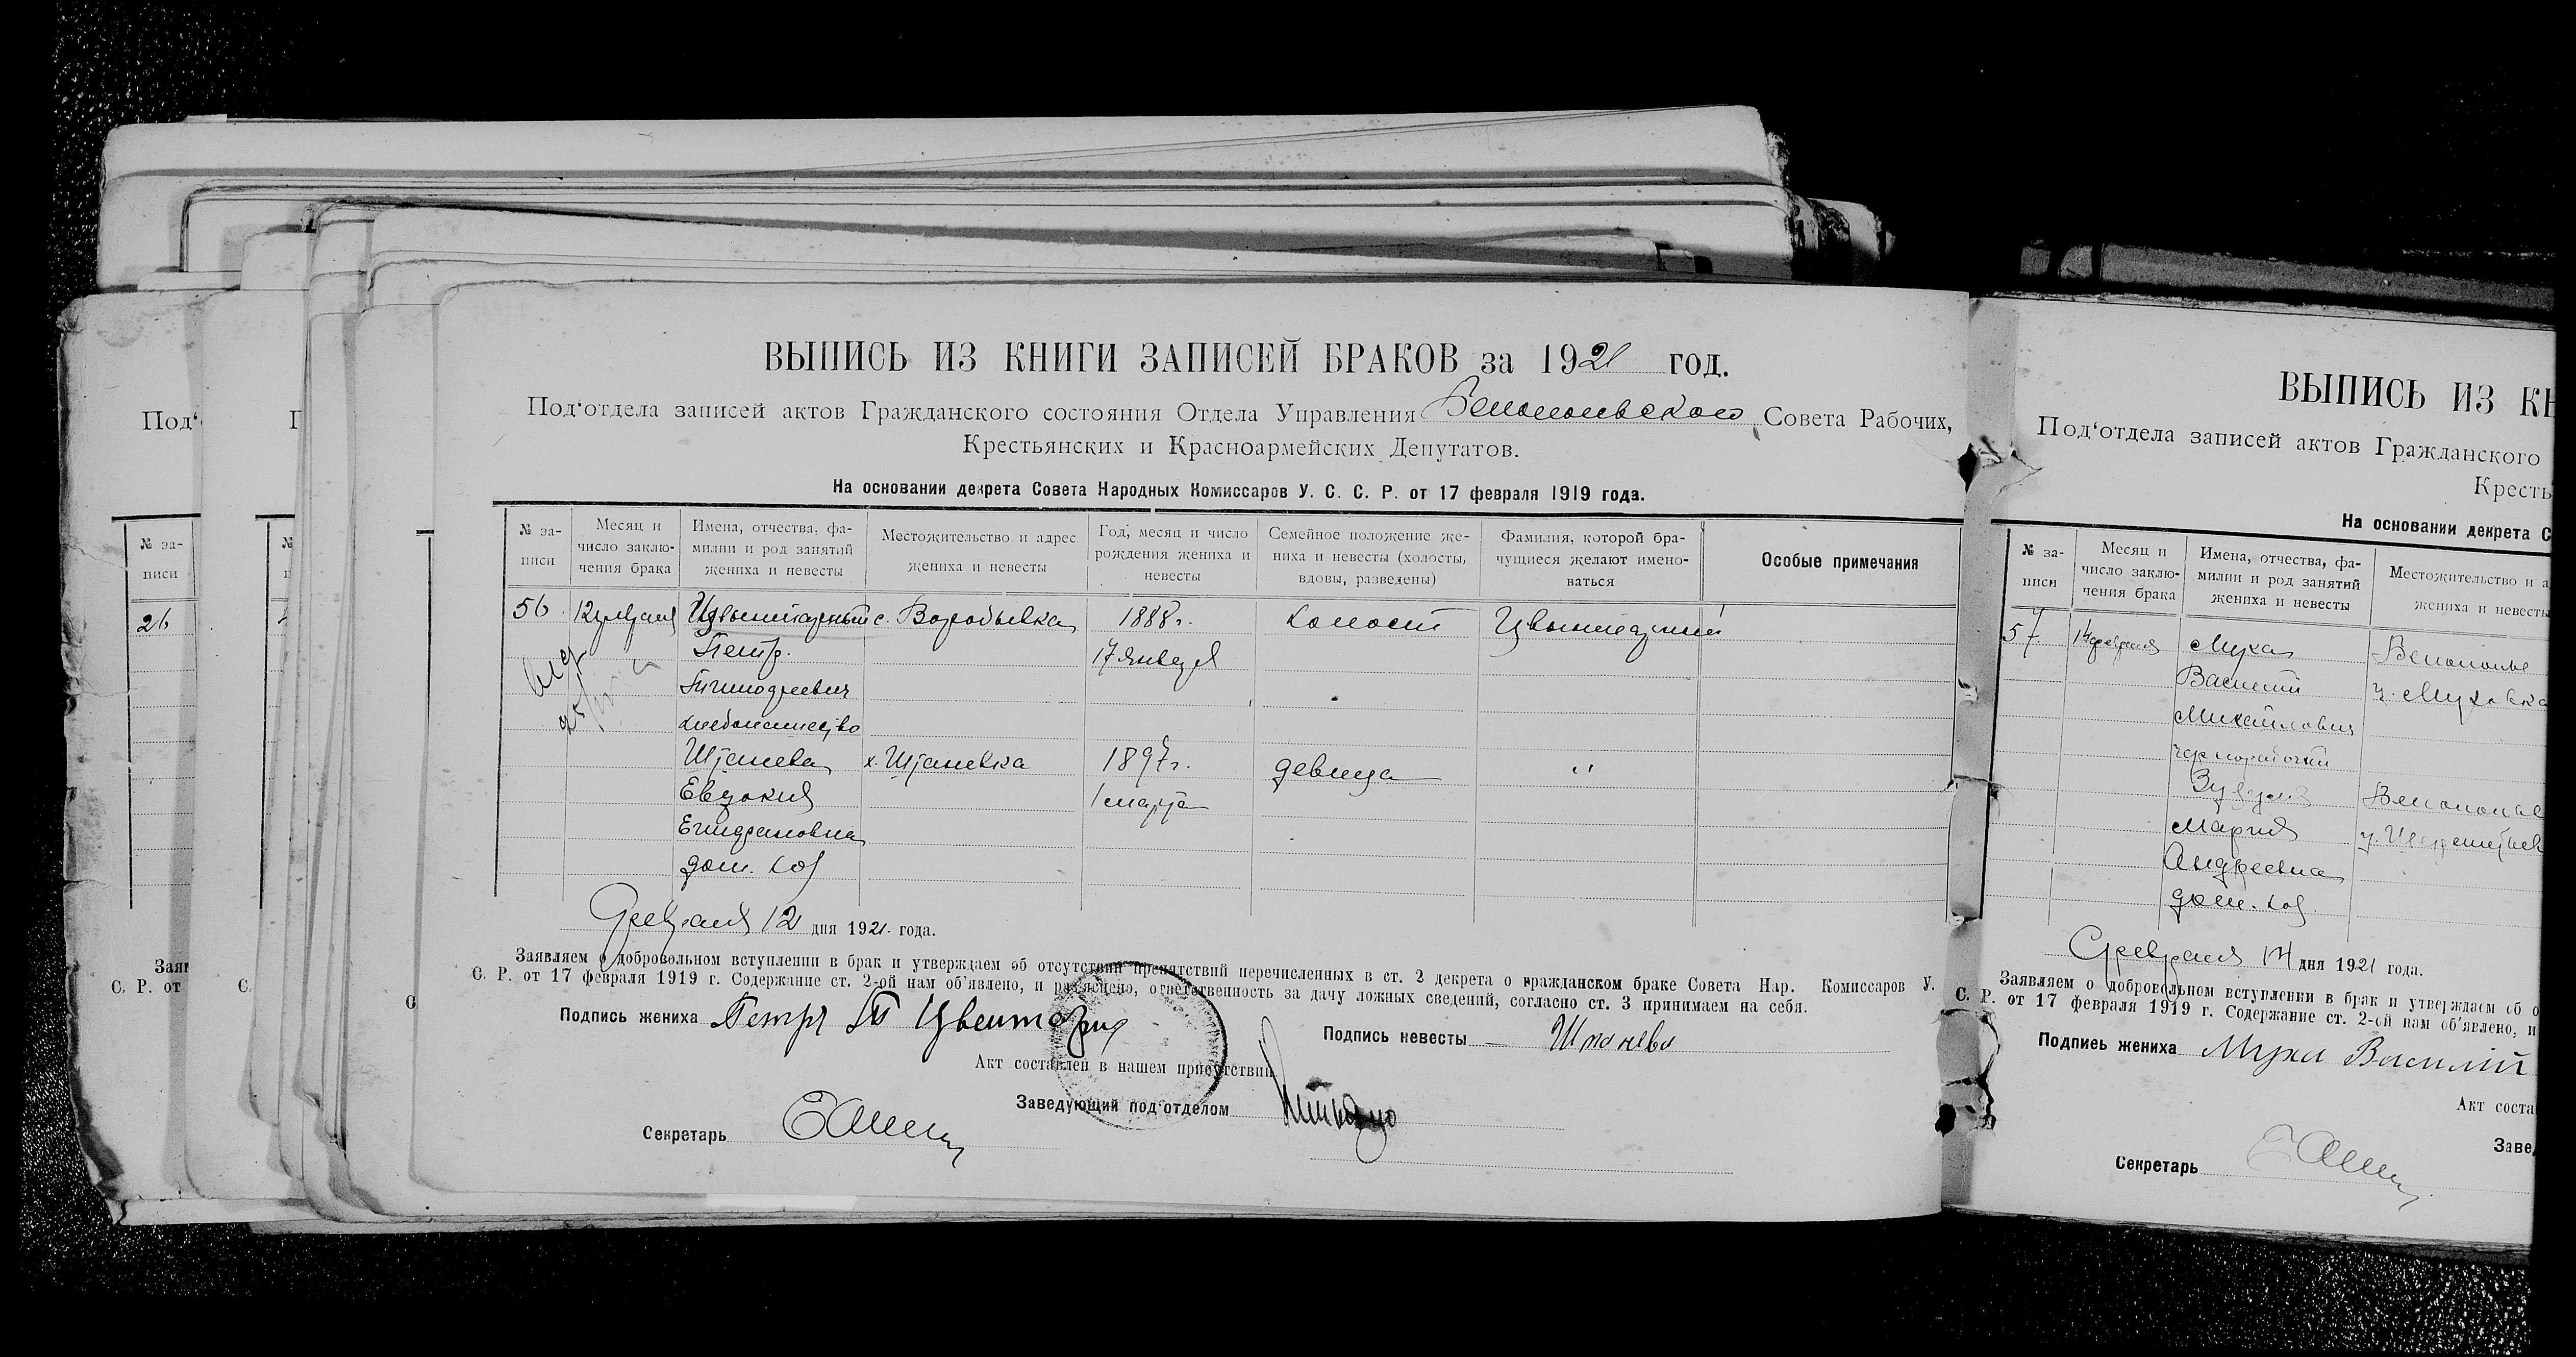 ВЫПИСЬ ИЗ КНИГИ ЗАПИСЕЙ БРАКОВ за 1921 год.
Под‘отдела записей актов Гражданского состояния Отдела Управления Совета Рабочих,
Крестьянских и Красноармейских Депутатов.
На основании декрета Совета Народных Комиссаров У. С. С. Р. от 17 февраля 1919 года.
№ за-
писи
Месяц и
число заклю-
чения брака
Имена, отчества, фа-
милии и род занятий
жениха и невесты
Местожительство и адрес
жениха и невесты
Год, месяц и число
рождения жениха и
невесты
Семейное положение же-
ниха и невесты (холосты,
вдовы, разведены)
Фамилия, которой бра-
чущиеся желают имено-
ваться
Особые примечания
56 12 февраля с. Воробьевка 1888 г. холост
Петр 17 января
Тимофеевич
хлебопашество
Штанева х. Штаневка 1897 г. девица "
Евдокия 1 марта
дом. хоз
Февраля 12 дня 1921 года.
Заявляем о добровольном вступлении в брак и утверждаем об отсутствии препятствий перечисленных в ст. 2 декрета о гражданском браке Совета Нар. Комиссаров У.
С. Р. от 17 февраля 1919 г. Содержание ст. 2-ой нам об‘явлено, и раз‘яснено, ответственность за дачу ложных сведений, согласно ст. 3 принимаем на себя.
Подпись жениха Петр Т
Подпись невесты Штанева
Акт составлен в нашем присутствии
Заведующий под‘отделом
Секретарь
ВЫПИСЬ ИЗ КН
Под‘отдела записей актов Гражданского
Кресть
На основании декрета С
№ за-
писи
Месяц и
число заклю-
чения брака
Имена, отчества, фа-
милии и род занятий
жениха и невесты
Местожительство и а
жениха и невесты
57 14 февраля Муха
Василий
Михайлович
чернорабочий
Мария
Андреевна
дом. хоз
Февраля 14 дня 1921 года.
Заявляем о добровольном вступлении в брак и утверждаем об о
С. Р. от 17 февраля 1919 г. Содержание ст. 2-ой нам об‘явлено, и
Подпись жениха Муха Василий
Акт соста
Заве
Секретарь
Под‘
№ за-
писи
26
Заяв
С. Р. от